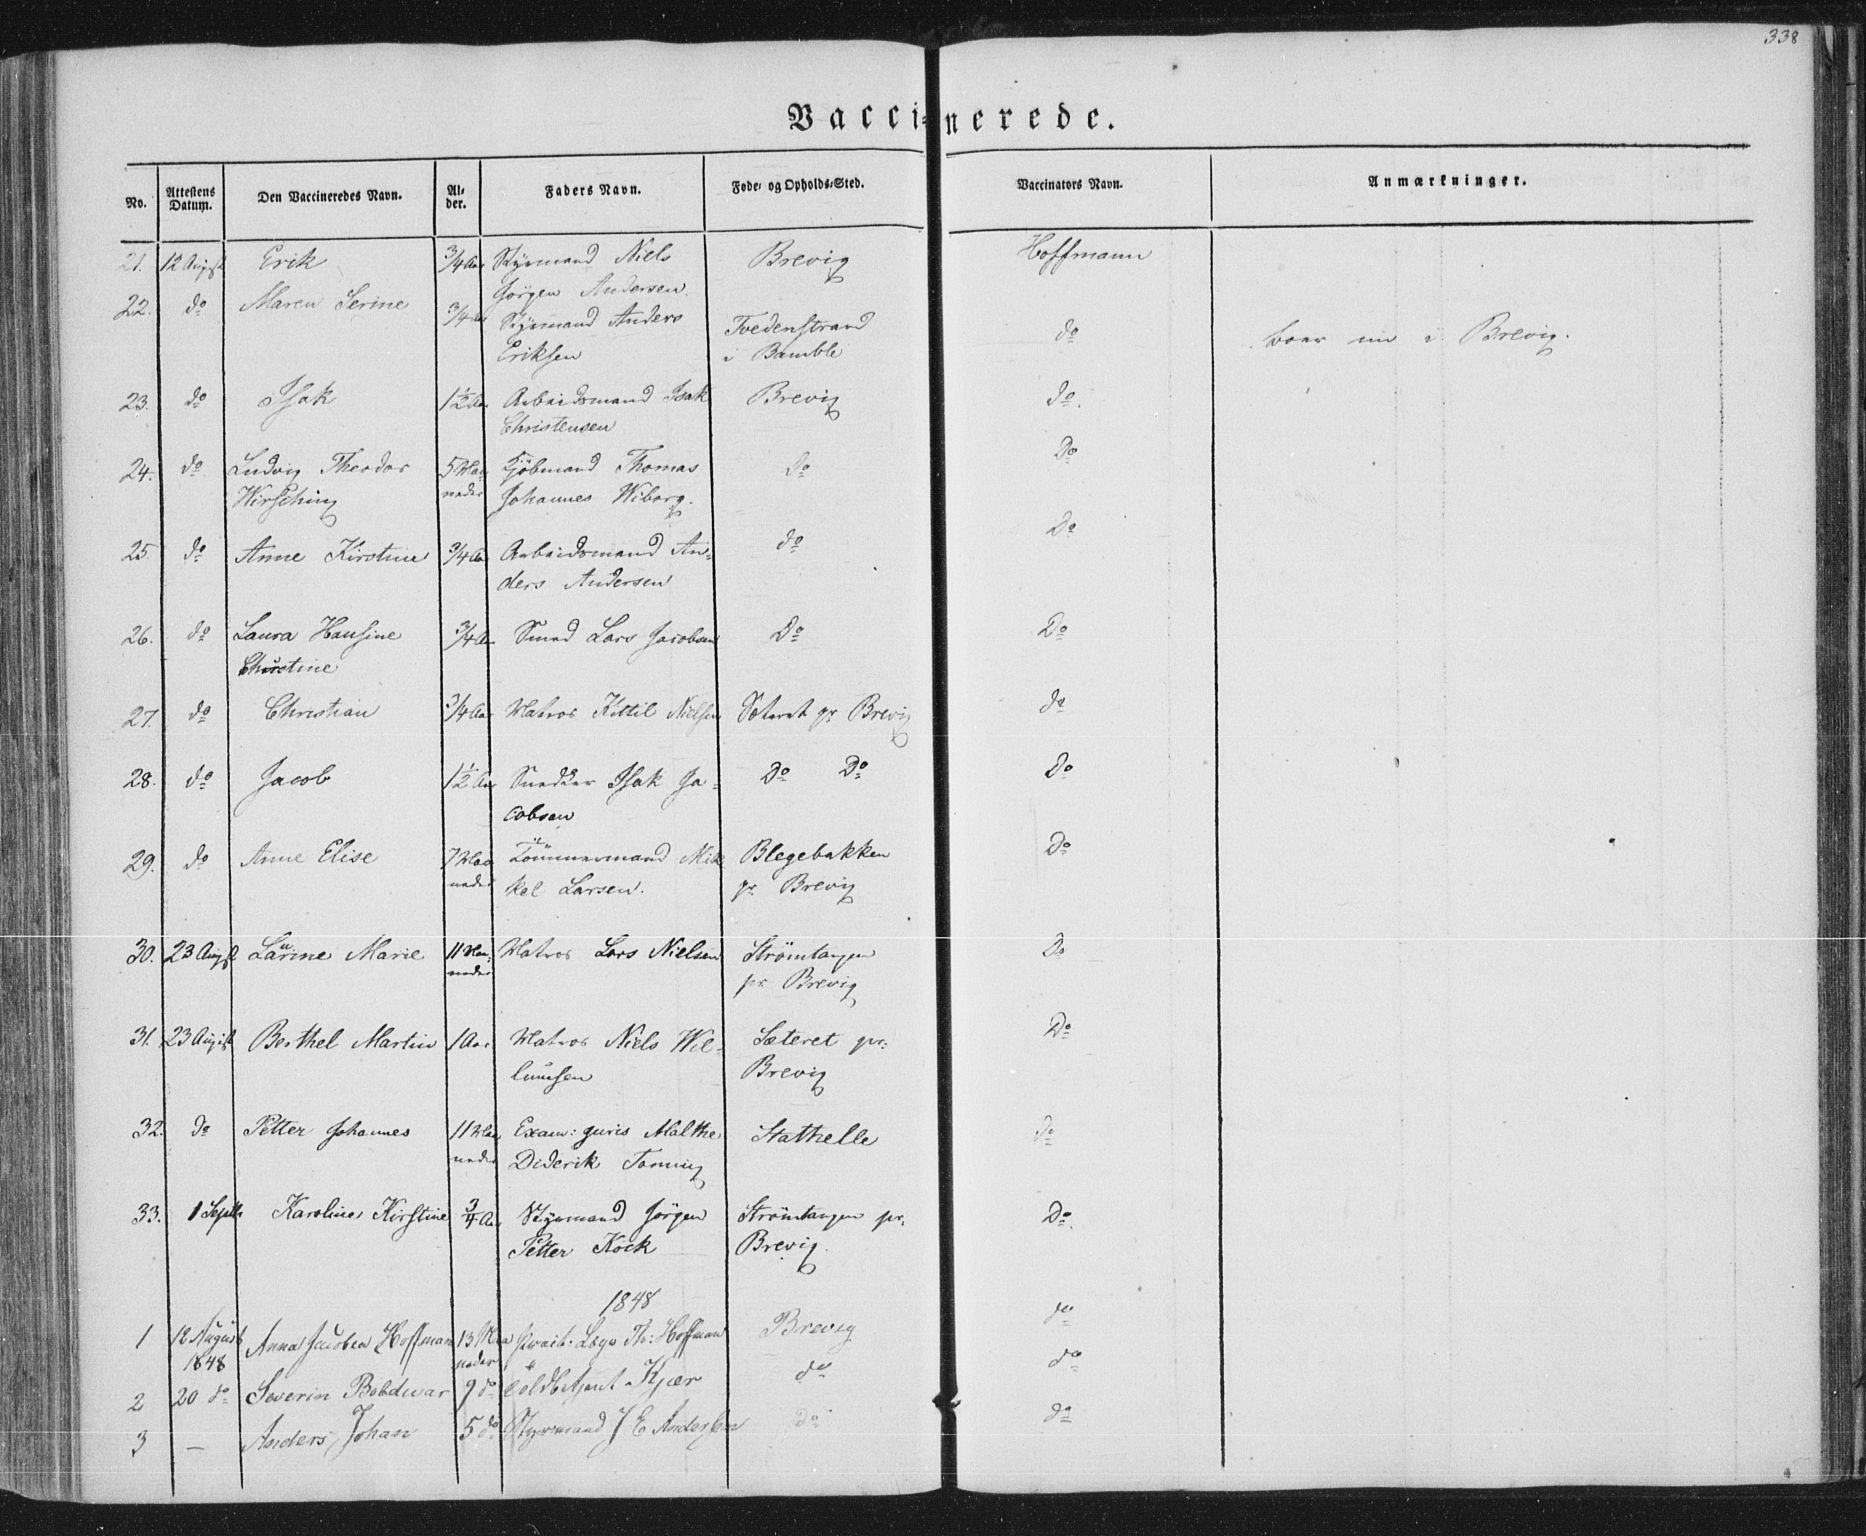 338
Vaccinerede.
No. Attestens Datum. Den Vaccineredes Navn. Alder. Faders Navn. Føde- og Opholds-Sted. Vaccinators Navn. Anmærkninger.
21. 12 August Erik 3/4 Aar Styrmand Niels Brevig Hoffmann
Jörgen Andersen.
22. do Maren Serine 3/4 Aar Styrmand Anders Tvedenstrand do boer nu i Brevig.
Eriksen i Bamble
23. do Isak 1 1/2 Aar Arbeidsmand Isak Brevig do.
Christensen
24. do Ludvig Theodor 5 Maa- Kjöbmand Thomas do Do
Hirsching neder Johannes Wiborg.
25. do Anne Kirstine 3/4 Aar Arbeidsmand An- do Do
ders Andersen
26. do Laura Hansine 3/4 Aar Smed Lars Jacobsen Do Do
Christine
27. do Christian 3/4 Aar Matros Kittil Nielsen Sæteret pr Brevig do
28. do Jacob 1 1/2 Aar Snedker Isak Ja- Do Do Do
cobsen
29. do Anne Elise 7 Maa- Tömmermand Mik- Blegebakken Do
neder kel Larsen. pr Brevig
30. 23 August Laurine Marie 11 Maa- Matros Lars Nielsen Strömtangen Do
neder pr. Brevig
31. 23 August Berthel Martin 1 Aar Matros Niels Wil- Sæteret pr. Do
lumsen Brevig
32. do Petter Johannes 11 Maa- Exam: juris Malthe Stathelle do
neder Diderik Tonning
33. 1 Septbr Karoline Kirstine 3/4 Aar Styrmand Jörgen Strömtangen pr. Do.
Petter Kock Brevig.
1848
1 12 August Anna Jacobea Hoffman 13 Maa- Læge Th: Hoffman Brevig do
1848 neder
2 20 do Severin 9 do Kjær do do
3 — Anders Johan 5 do Styrmand J E Andersen do do